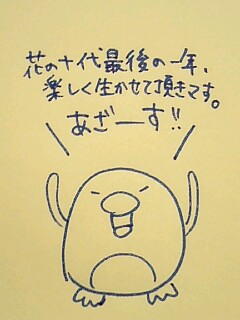 花の十代最後の一年、
楽しく生かせて頂きます。
あざーす!!